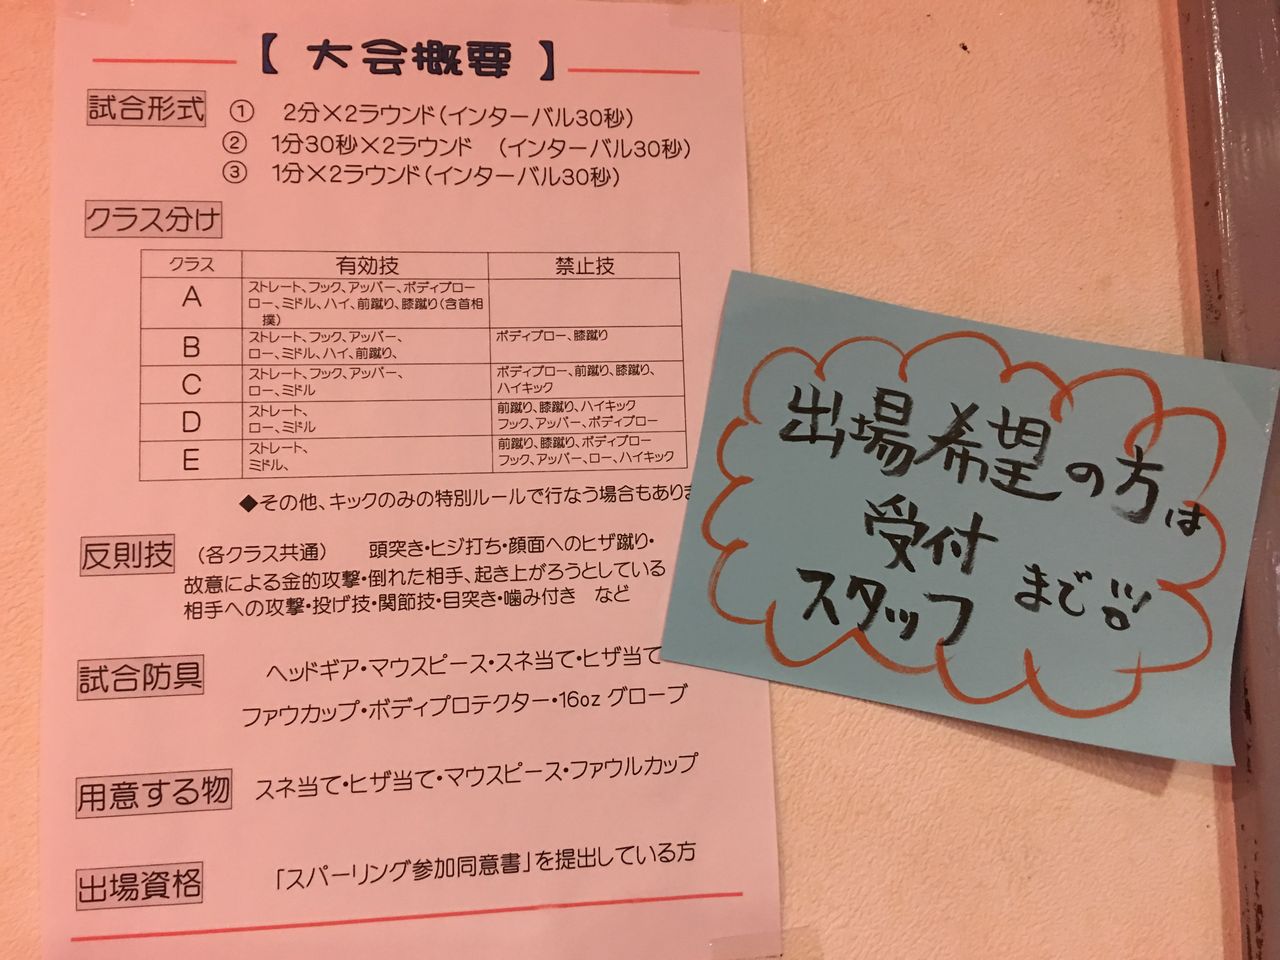 【 大会概要 】
試合形式 ① 2分×2ラウンド(インターバル30秒)
② 1分30秒×2ラウンド (インターバル30秒)
③ 1分×2ラウンド(インターバル30秒)
クラス分け
クラス 有効技 禁止技
A ストレート、フック、アッパー、ボディブロー
ロー、ミドル、ハイ、前蹴り、膝蹴り(含首相
撲)
B ストレート、フック、アッパー、 ボディブロー、膝蹴り
ロー、ミドル、ハイ、前蹴り、
C ストレート、フック、アッパー、 ボディブロー、前蹴り、膝蹴り、
ロー、ミドル ハイキック
D ストレート、 前蹴り、膝蹴り、ハイキック
ロー、ミドル フック、アッパー、ボディブロー
E ストレート、 前蹴り、膝蹴り、ボディブロー
ミドル、 フック、アッパー、ロー、ハイキック
◆その他、キックのみの特別ルールで行なう場合もありま
反則技 (各クラス共通) 頭突き・ヒジ打ち・顔面へのヒザ蹴り・
故意による金的攻撃・倒れた相手、起き上がろうとしている
相手への攻撃・投げ技・関節技・目突き・噛み付き など
試合防具 ヘッドギア・マウスピース・スネ当て・ヒザ当て
ファウカップ・ボディプロテクター・16oz グローブ
用意する物 スネ当て・ヒザ当て・マウスピース・ファウルカップ
出場資格 「スパーリング参加同意書」を提出している方
出場希望の方は
受付
スタッフ まで